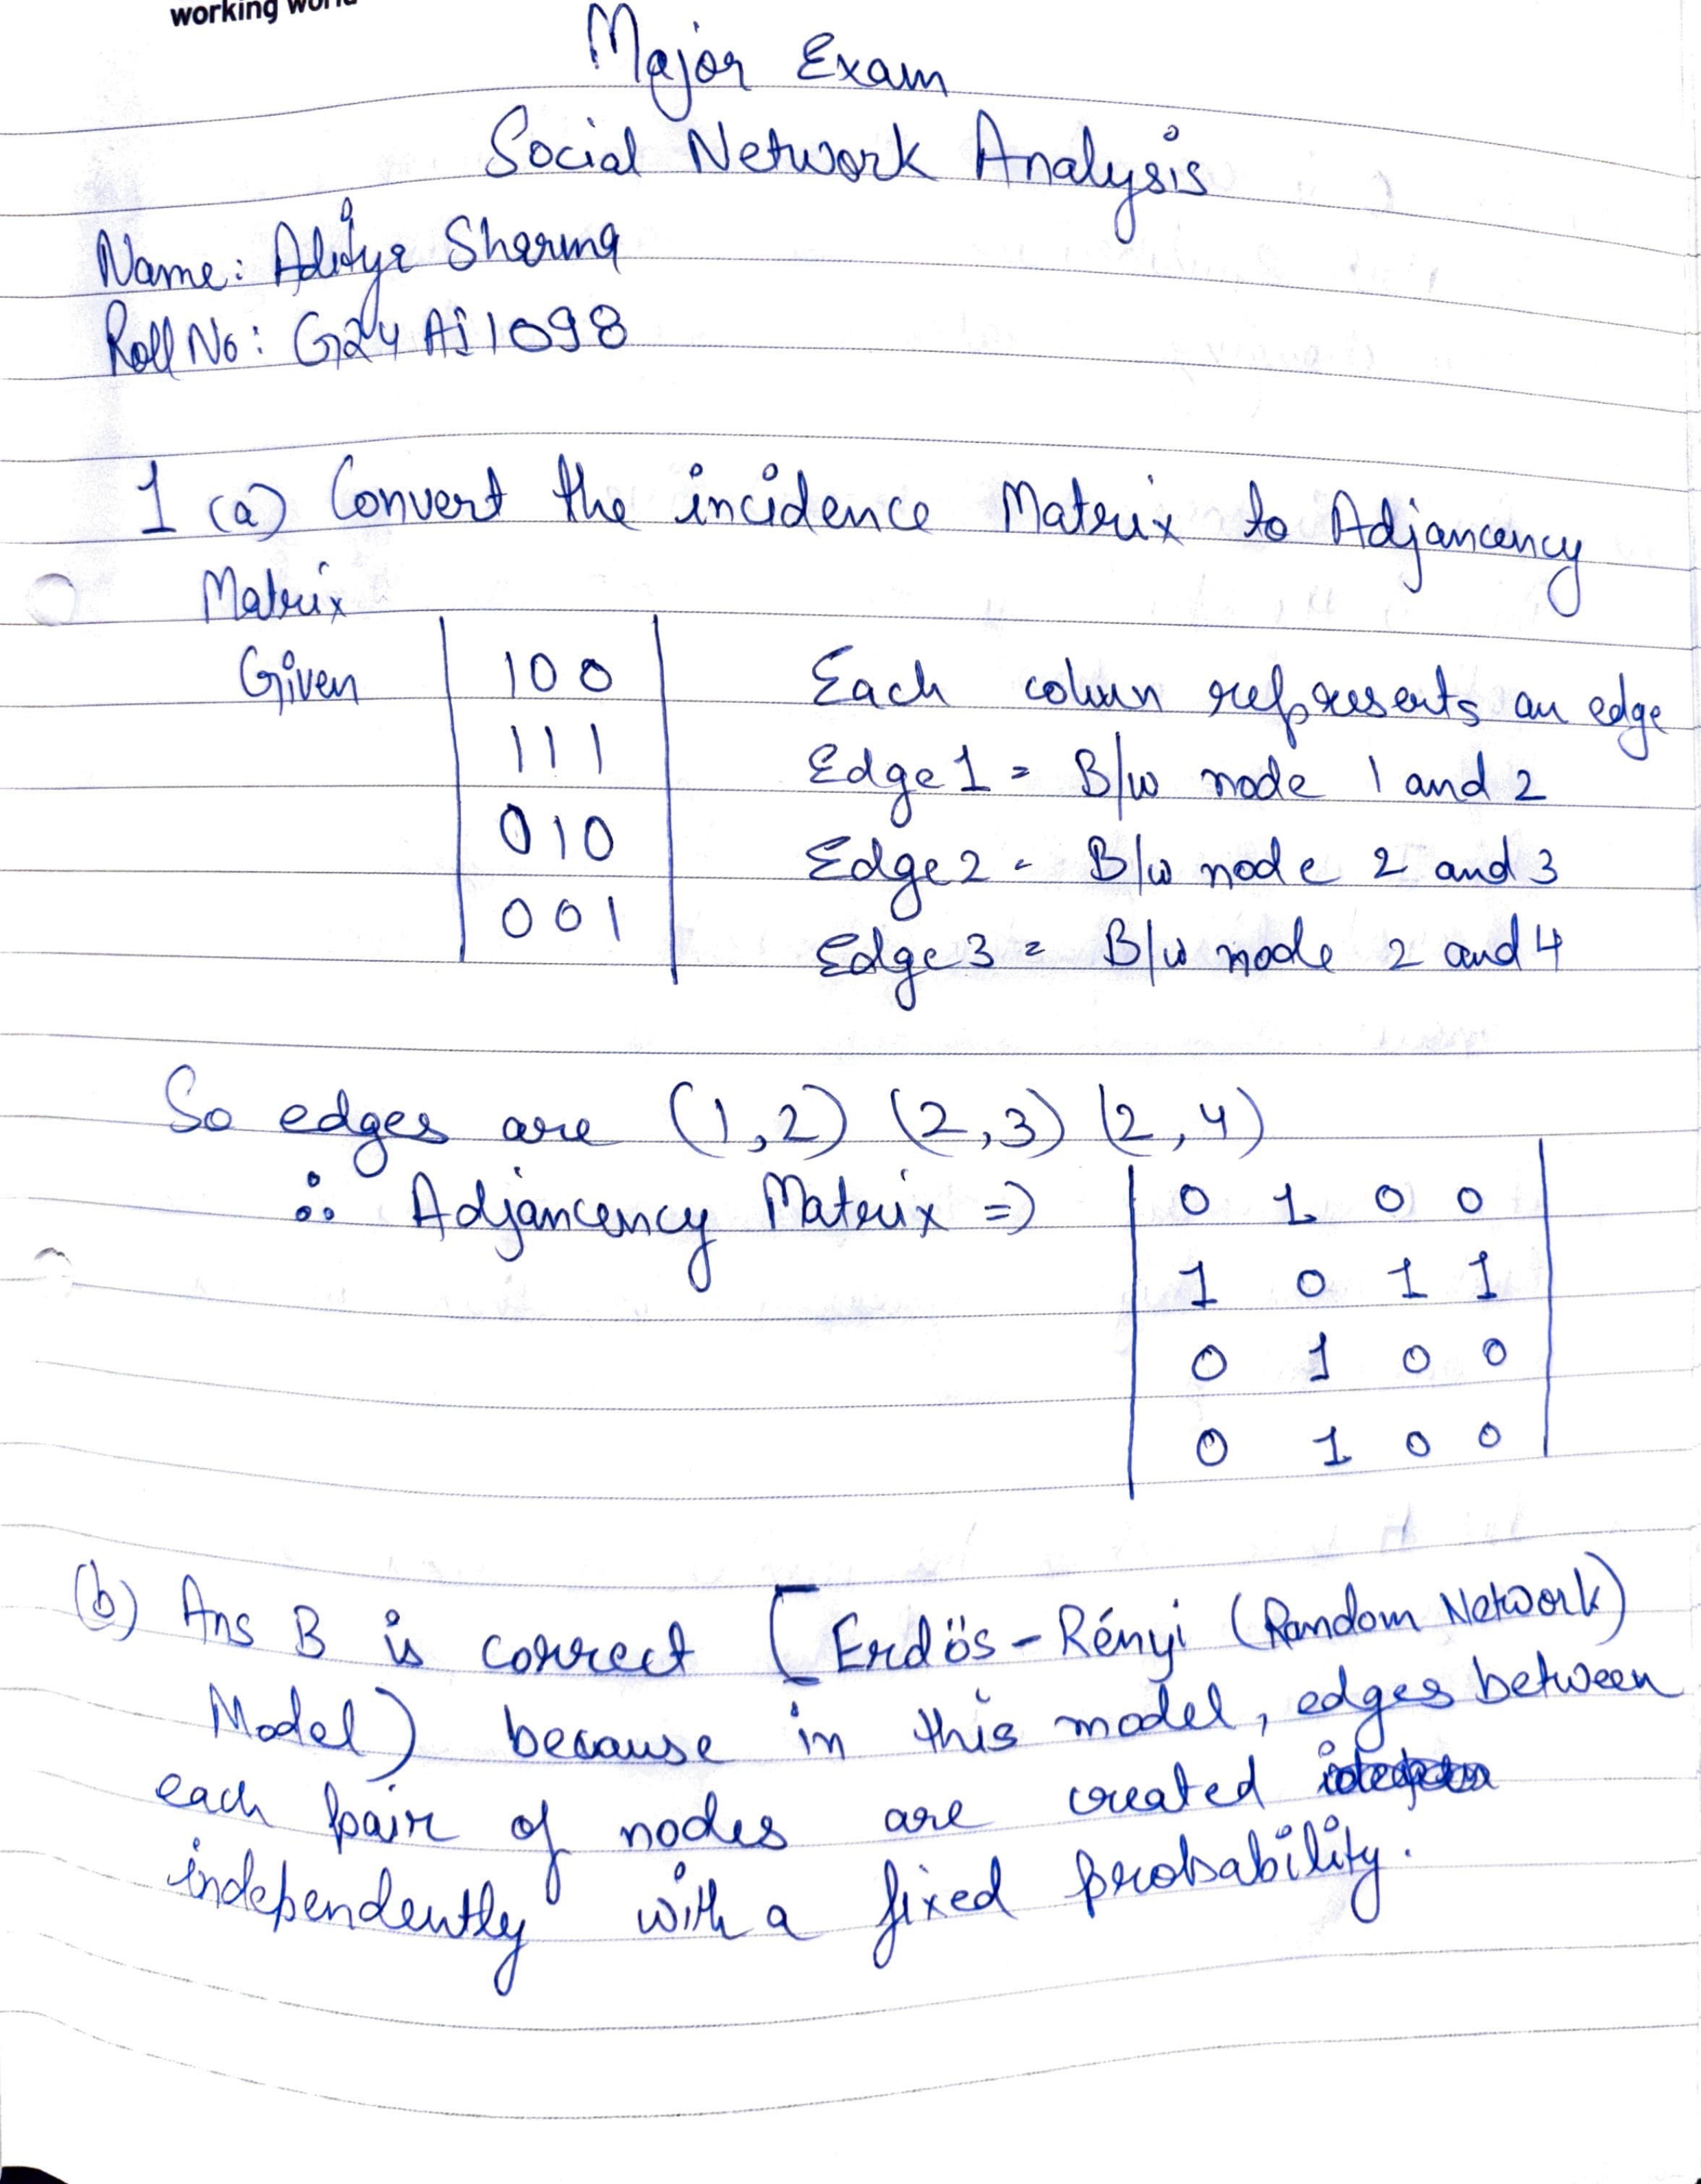 working world
Major Exam
Social Network Analysis
Name: Aditya Sharma
Roll No: G24AI1098
1 (a) Convert the incidence Matrix to Adjancency
Matrix
Given 1 0 0 Each colum represents an edge
1 1 1 Edge 1 = B/w node 1 and 2
0 1 0 Edge 2 - B/w node 2 and 3
0 0 1 Edge 3 = B/w node 2 and 4
So edges are (1,2) (2,3) (2,4)
∴ Adjancency Matrix => 0 1 0 0
1 0 1 1
0 1 0 0
0 1 0 0
(b) Ans B is correct [Erdös-Rényi (Random Network)
Model) because in this model, edges between
each pair of nodes are created
independently with a fixed probability.